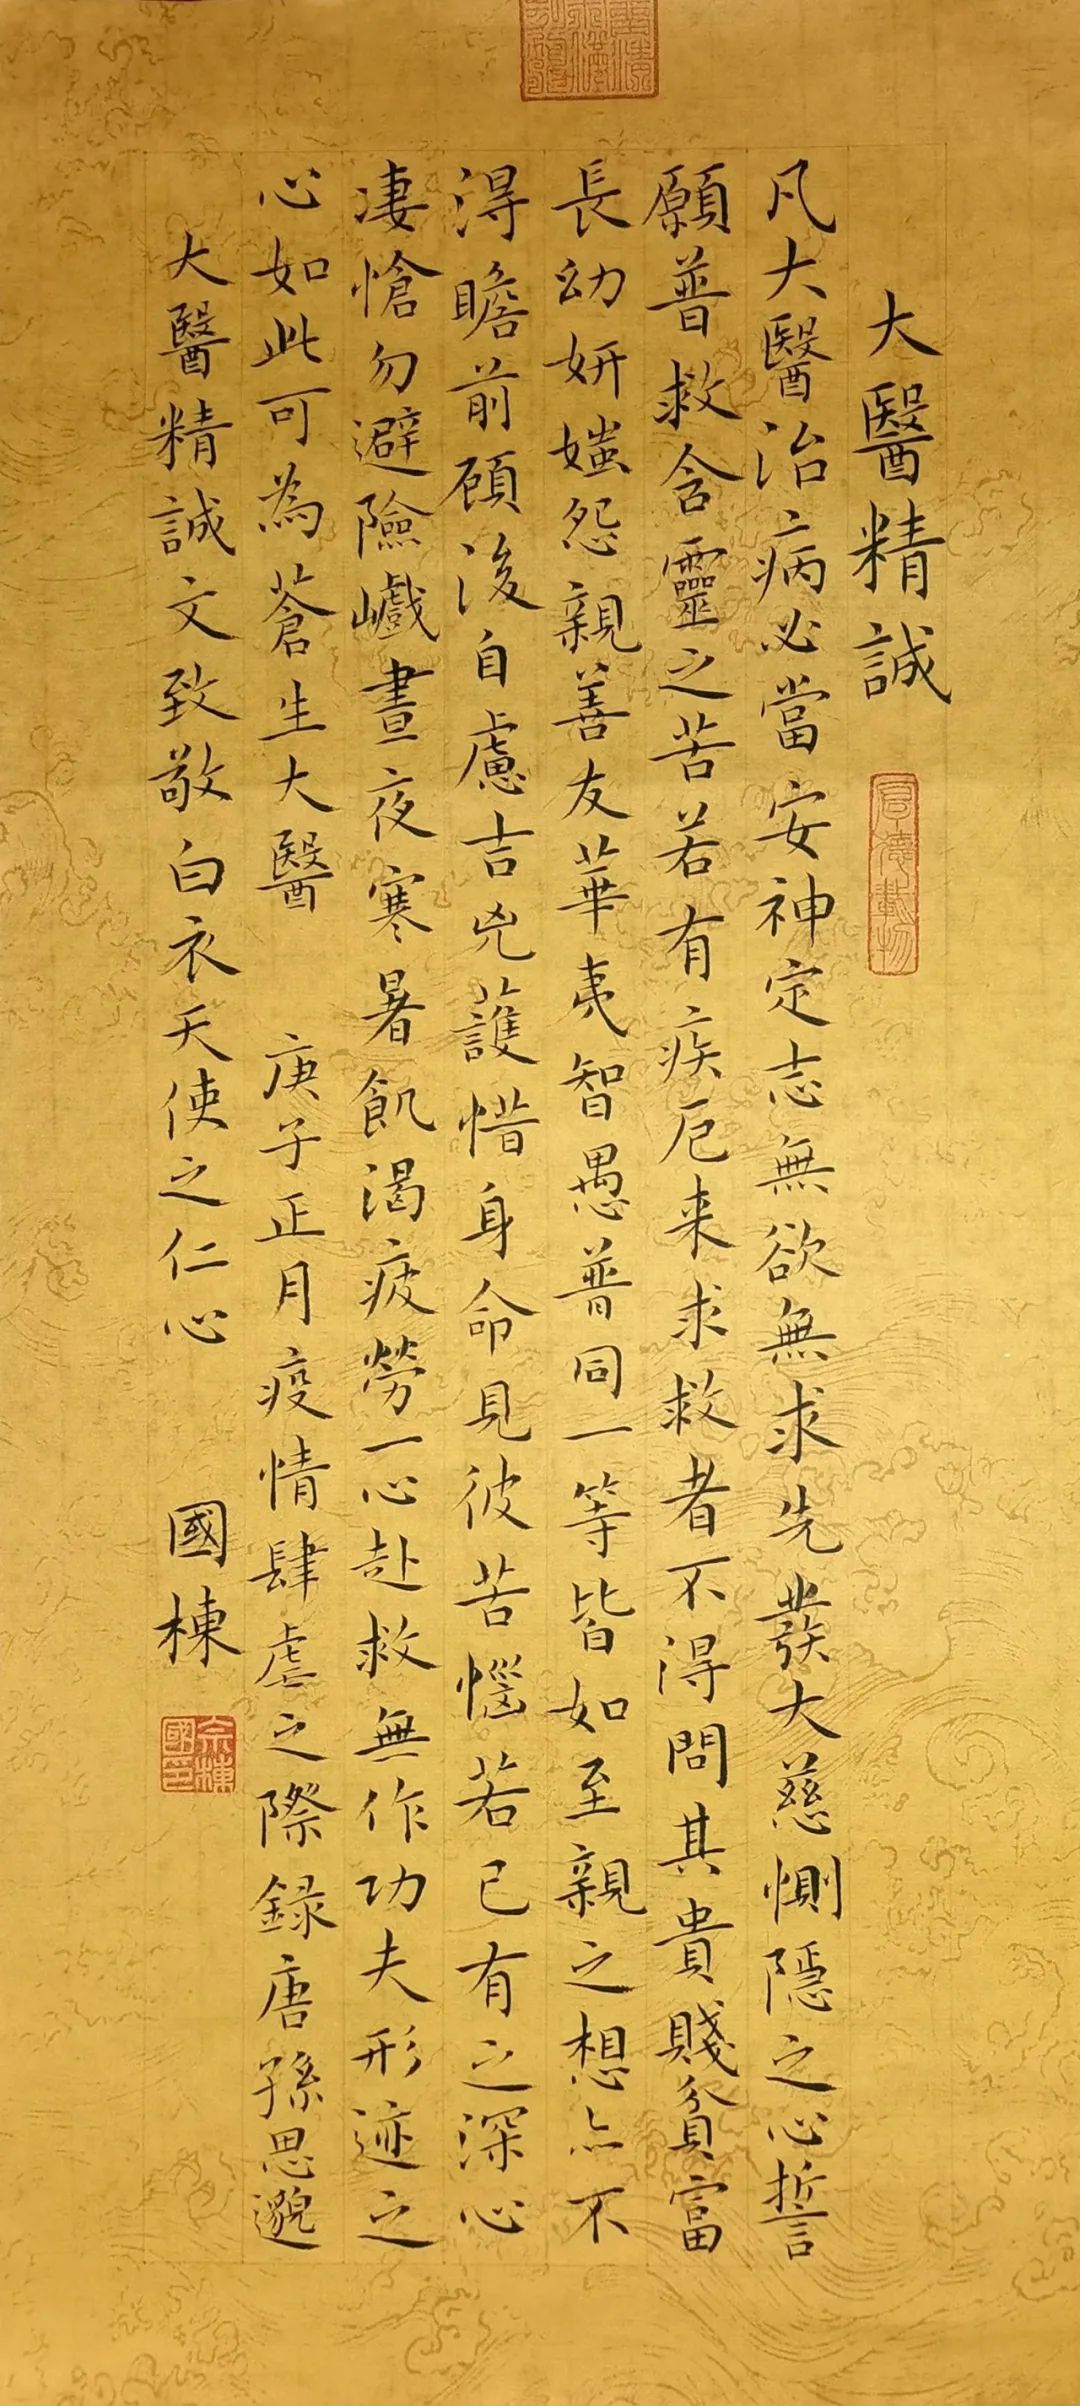 大醫精誠
凡大醫治病必當安神定志無欲無求先發大慈惻隱之心誓
願普救含靈之苦若有疾厄来求救者不得問其貴賤貧富
長幼妍媸怨親善友華夷智愚普同一等皆如至親之想亦不
得瞻前顧後自慮吉兇護惜身命見彼苦惱若己有之深心
凄愴勿避險巇晝夜寒暑飢渴疲勞一心赴救無作功夫形迹之
心如此可為蒼生大醫 庚子正月疫情肆虐之際録唐孫思邈
大醫精誠文致敬白衣天使之仁心 國棟
厚德載物